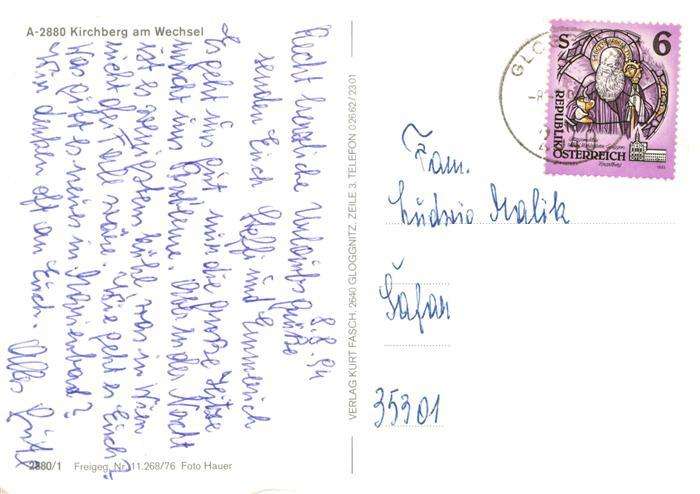 A-2880 Kirchberg am Wechsel
8.8.94
Recht herzliche Urlaubsgrüße
senden Euch Steffi und Emmerich
Es geht uns gut nur die große Hitze
macht uns Probleme. Aber in der Nacht
ist es wenigstens kühl was in Wien
nicht der Fall wäre. Wie geht es Euch?
Was gibt es neues in Marienbad?
Wir denken oft an Euch. Alles Gute
2880/1 Freigeg. Nr. 11.268/76 Foto Hauer
VERLAG KURT FASCH, 2640 GLOGGNITZ, ZEILE 3, TELEFON 02662/2301
GLO
S 6
REPUBLIK
ÖSTERREICH
Fam.
Ludwig Malik
Šafan
35301